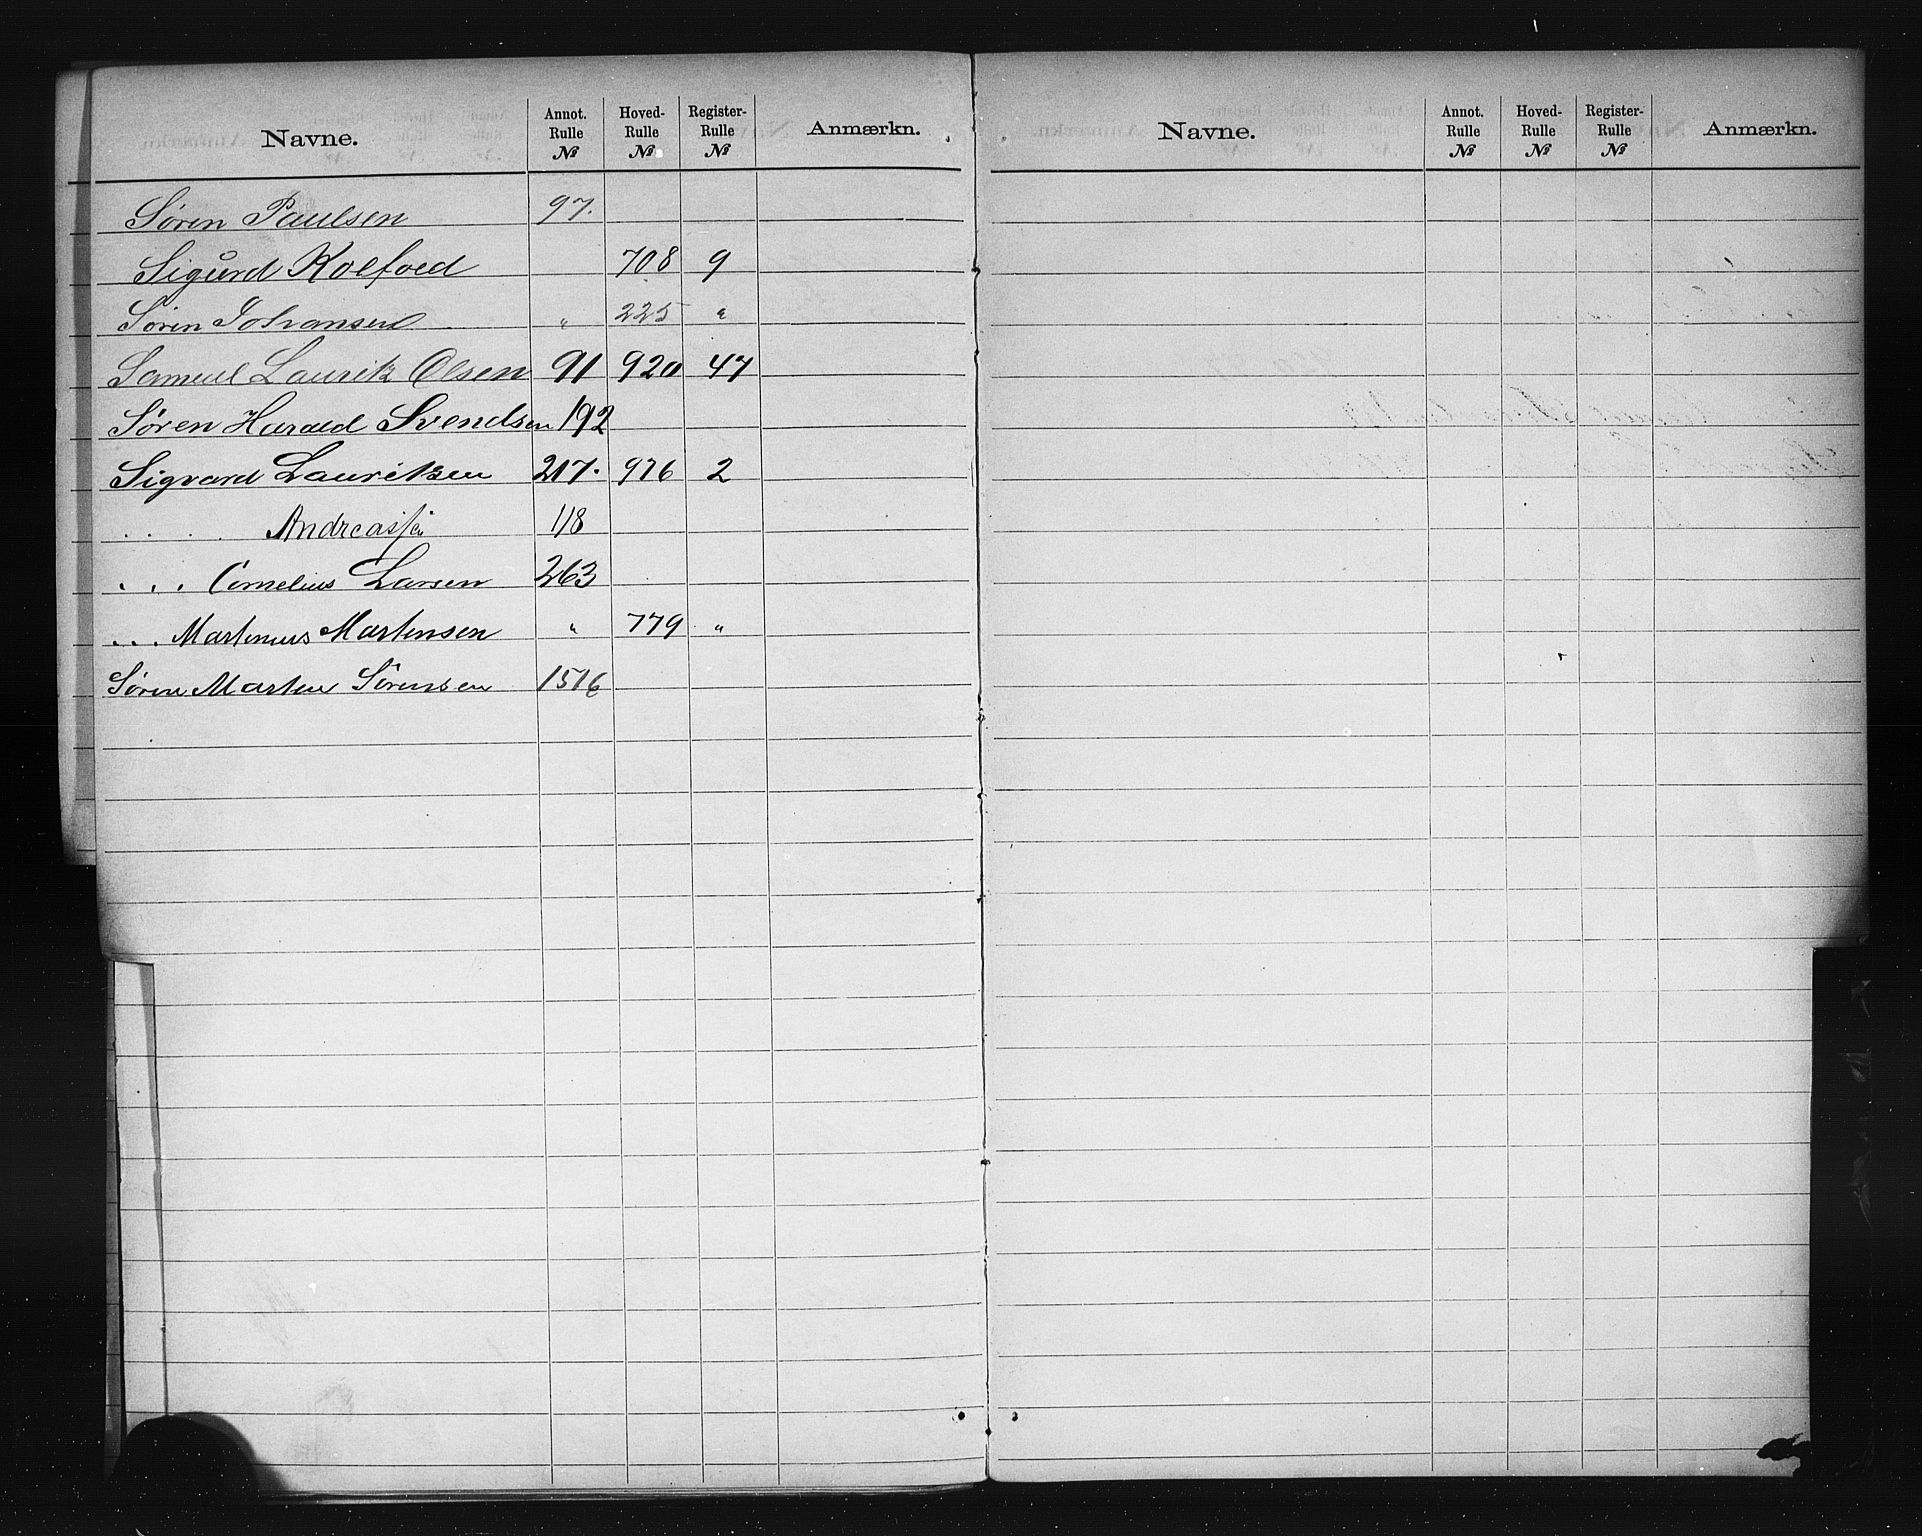 Navne. Annot. Rulle № Hoved-Rulle № Register-Rulle № Anmærkn.
Søren Paulsen 97.
Sigurd Kolfoed 708 9
Søren Johansen " 225 "
Samuel Laurik Olsen 91 920 47
Søren Harald Svendsen 192
Sigvard Lauritsen 217. 976 2
. . . . Andreas 118
. . . Cornelius Larsen 263
. . . Martinius Martensen " 779 "
Søren Marten Sørensen 1516
Navne. Annot. Rulle № Hoved-Rulle № Register-Rulle № Anmærkn.